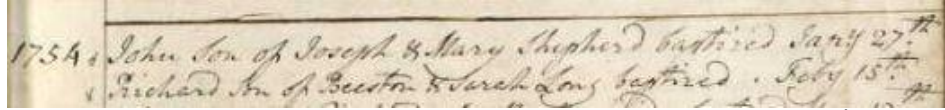 1754 John Son of Joseph & Mary Shepherd baptized Jany 27.th
Richard Son of Beeston & Sarah Long baptized . Feby 15th